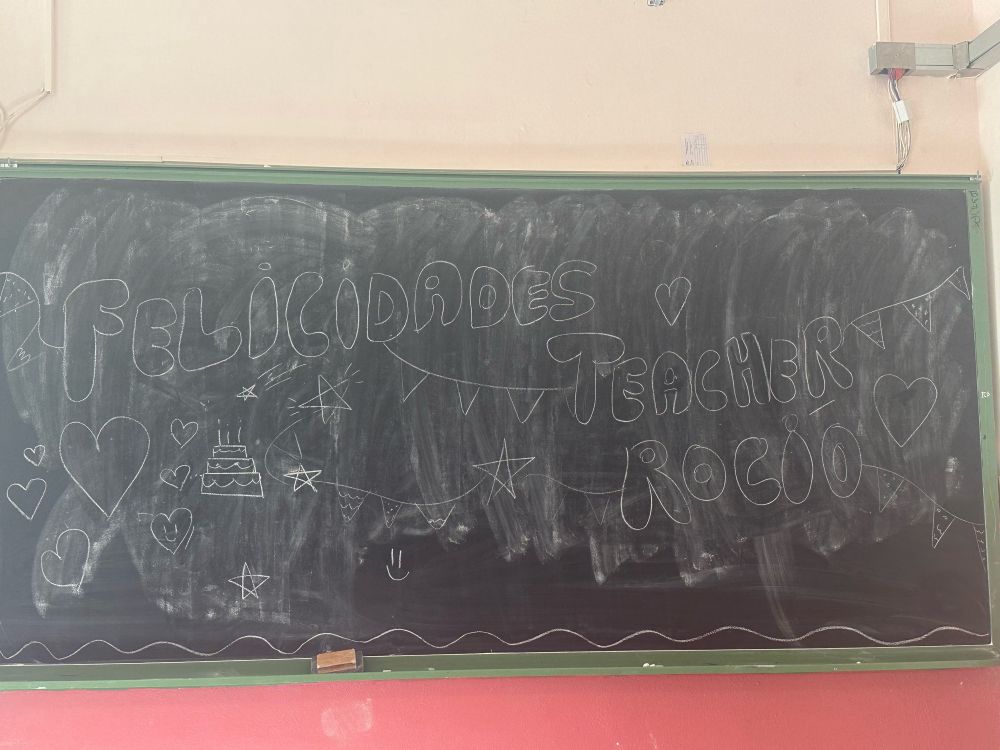 FELICIDADES
TEACHER
ROCÍO